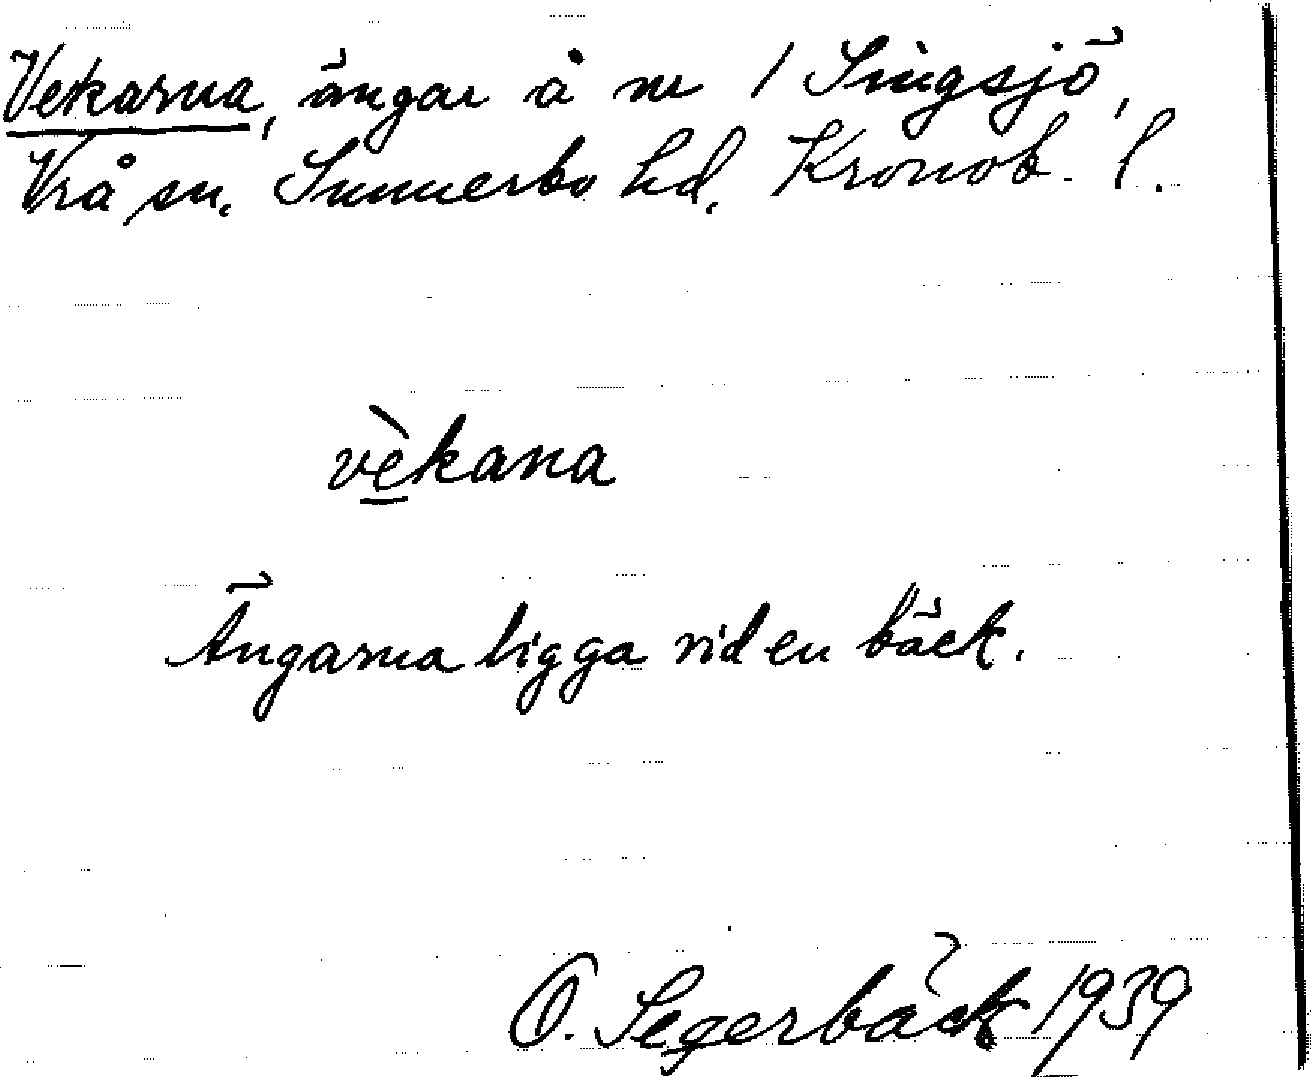 Vekarna, ängar å nr 1 Singsjö,
Vrå sn. Sunnerbo hd. Kronob. l.
vèkana
Ängarna ligga vid en bäck.
O. Segerbäck 1939